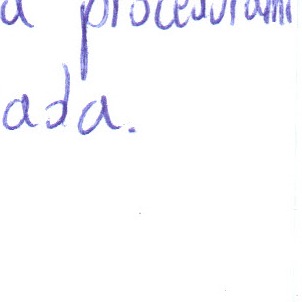 a procedurami
ada.